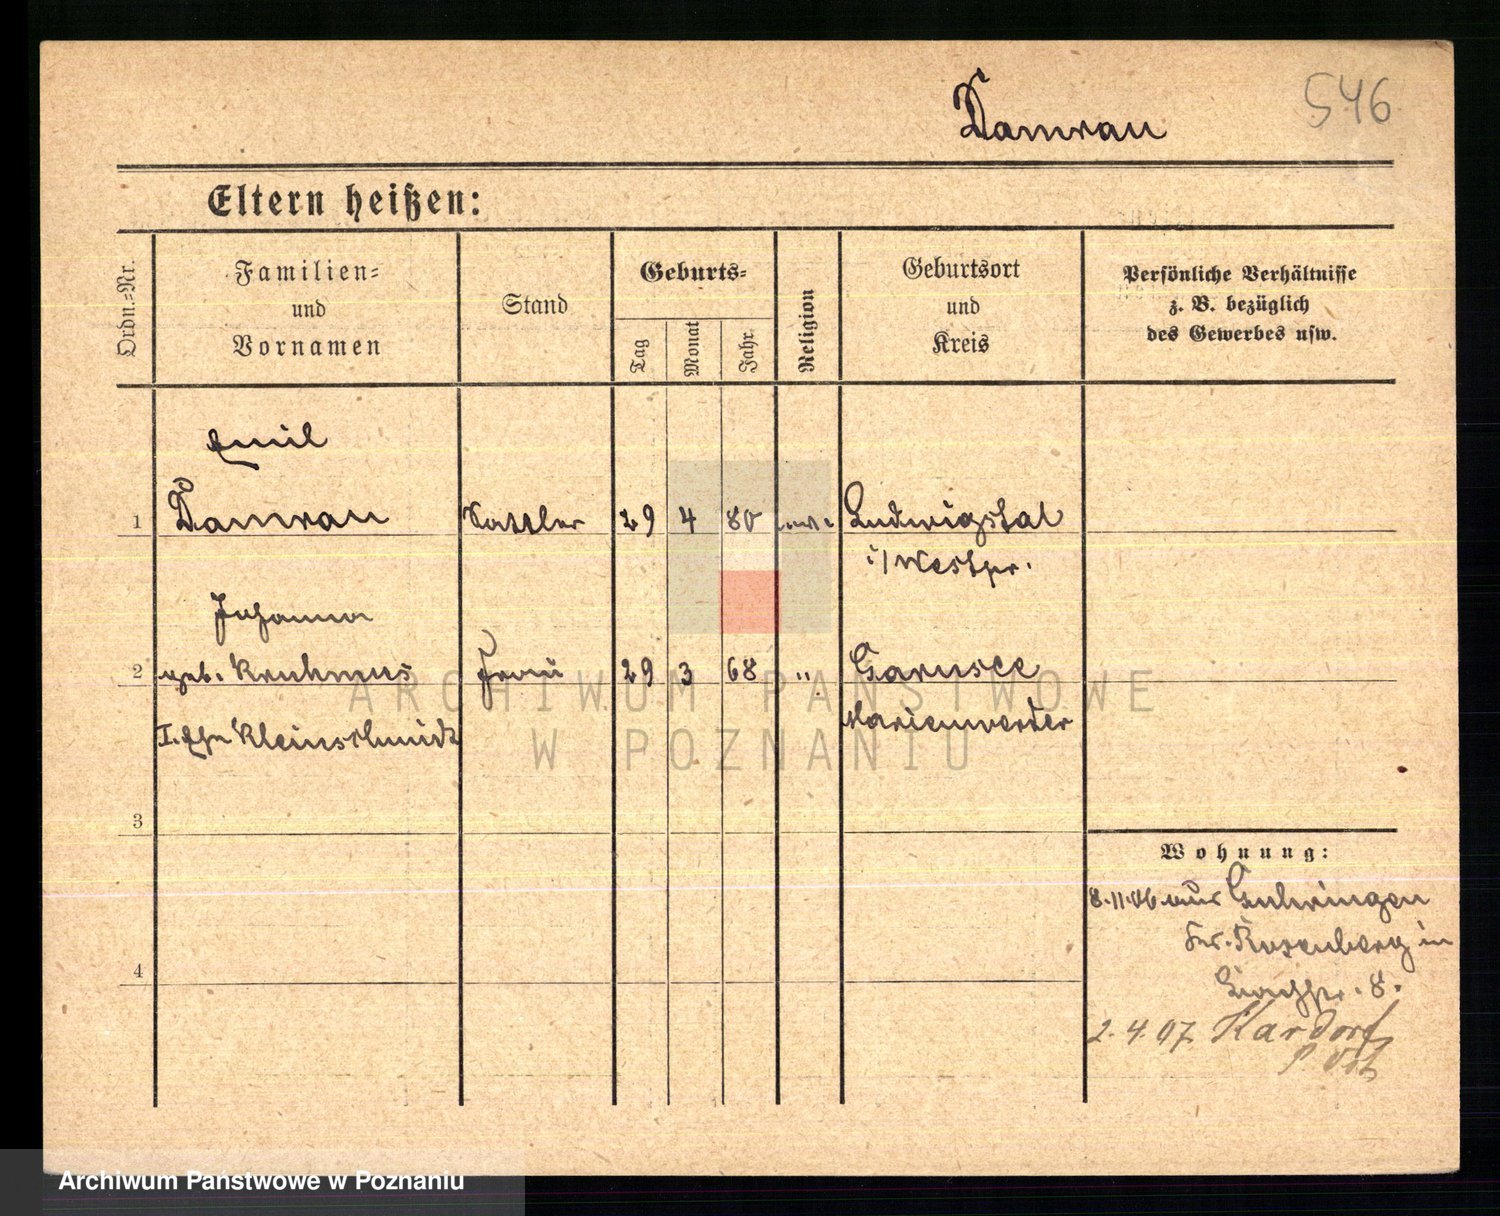 Damrau
546
Eltern heißen:
Ordn.=Nr.
Familien=
und
Vornamen
Stand
Geburts=
Tag
Monat
Jahr
Religion
Geburtsort
und
Kreis
Persönliche Verhältnisse
z. B. bezüglich
des Gewerbes usw.
Emil
1 Damrau Sattler 29 4 80 ev. Ludwigstal
i/Westpr.
Johanna
2 geb. Frau 29 3 68 " Garnsee
I. Ehe Kleinschmidt Marienwerder
3
Wohnung:
8.11.06 aus Guhringen
Kr. Rosenberg in
8.
4
2.4.07 Kardorf
P. Ost
ARCHIWUM PAŃSTWOWE
W POZNANIU
Archiwum Państwowe w Poznaniu